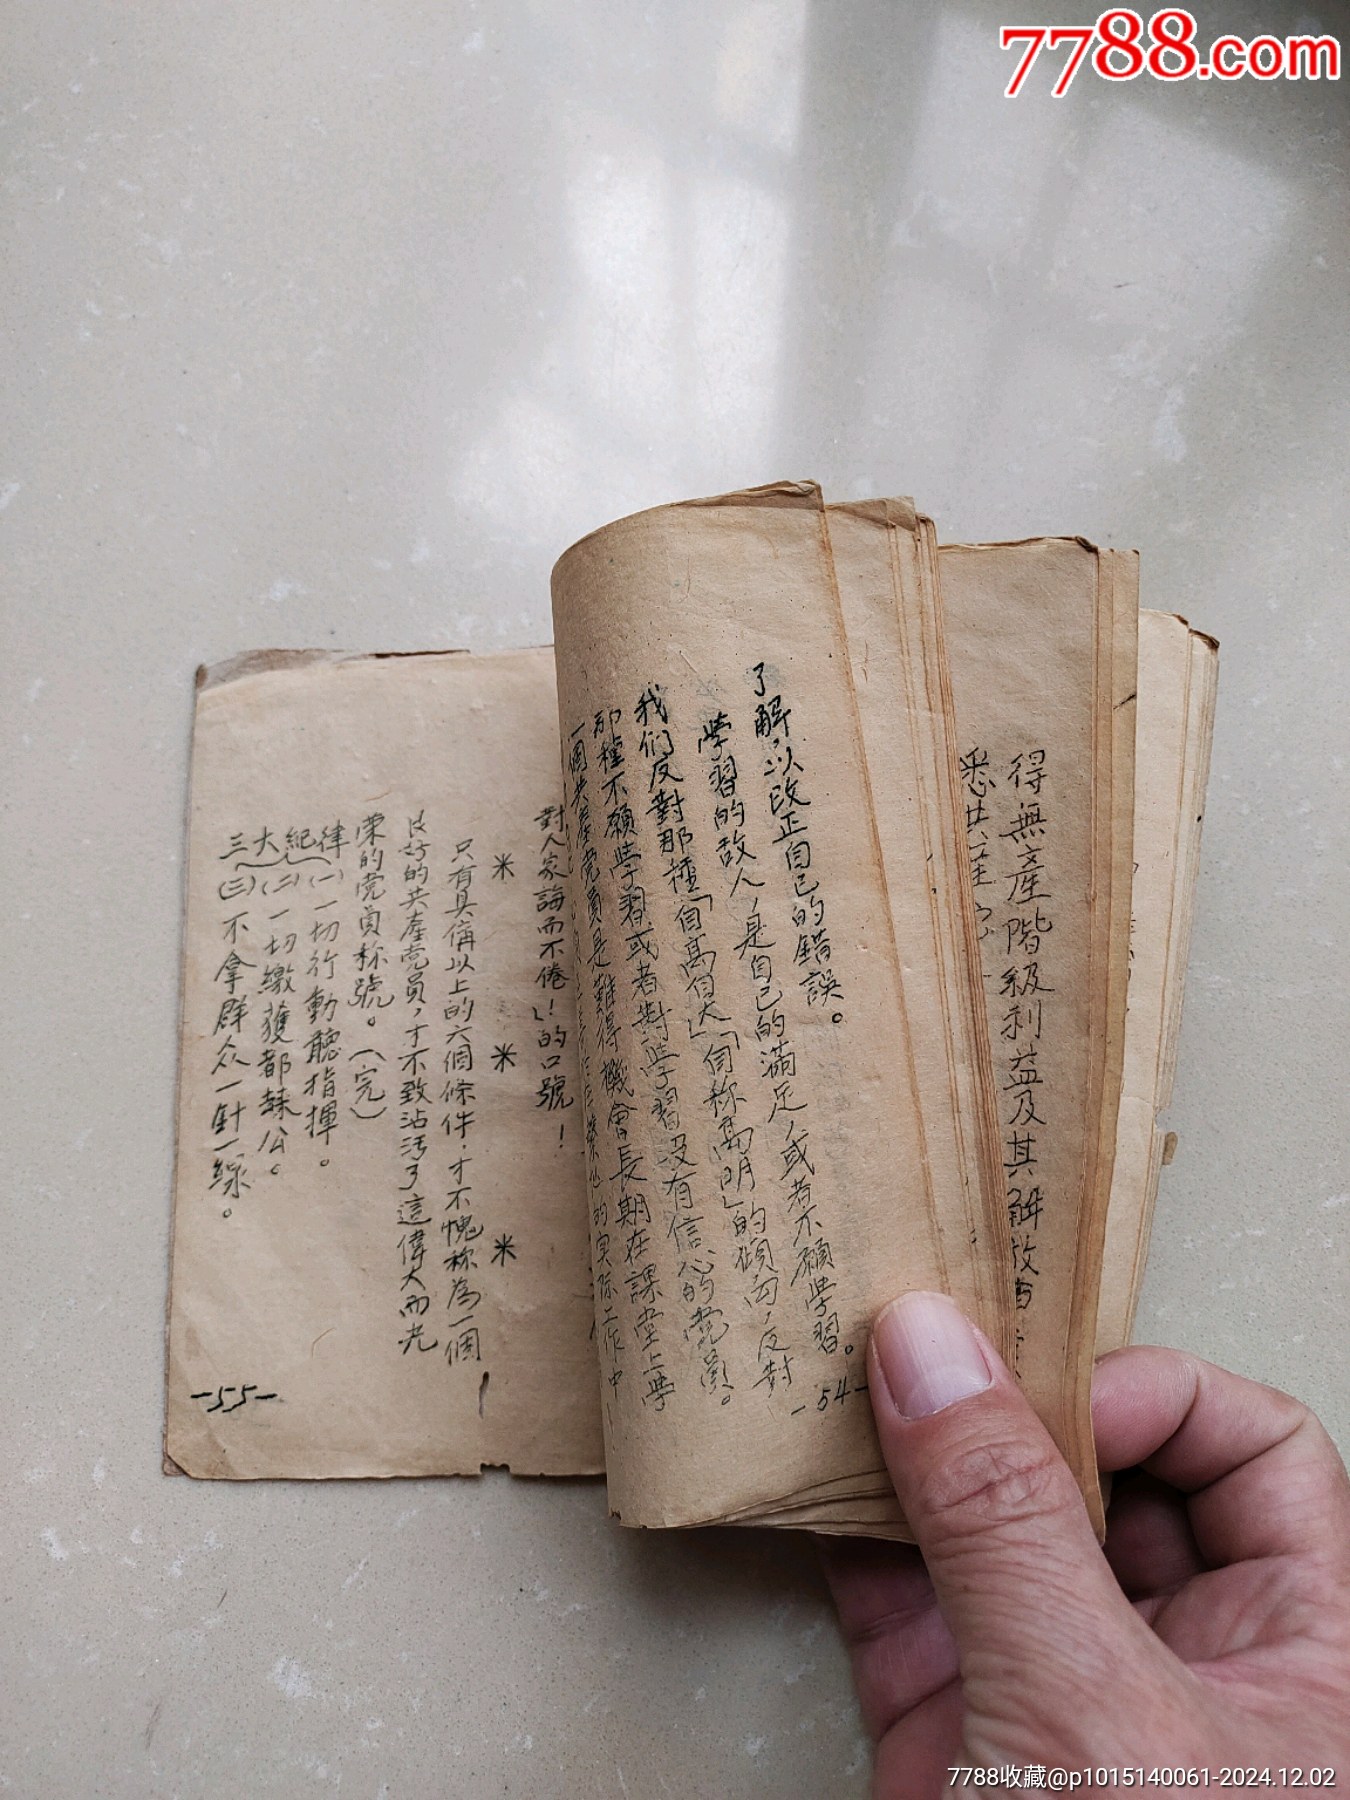 7788.com
得無產階級利益及其解放
悉共產
了解，以改正自己的錯誤。
學習的敌人，是自己的滿足，或者不願學習。
我们反對那種「自高自大」「自称高明」的傾向，反對
那種不願學習或者對學習没有信心的党員。
一個共產党員是難得機會長期在課堂上學
的实际工作中
對人家誨而不倦！」的口號！
米 米 米
只有具備以上的六個條件，才不愧称為一個
良好的共產党員，才不致沾污了這偉大而光
荣的党員称號。（完）
三大紀律
(一)一切行動聽指揮。
(二)一切繳獲都歸公。
(三)不拿群众一針一線。
-54-
-55-
7788收藏@p1015140061-2024.12.02